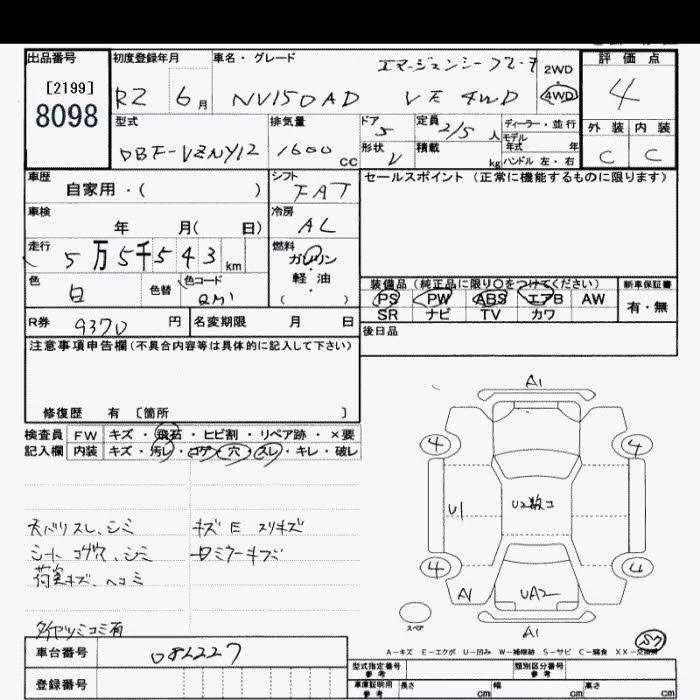 出品番号 初度登録年月 車名・グレード エマージェンシーブレーキ 2WD 評価点
[2199] R2 6月 NV150AD VE 4WD 4WD 4
8098
型式 排気量 ドア 5 定員 2/5人 ディーラー・並行 外装 内装
DBF-VZNY12 1600cc 形状 V 積載 kg モデル年式 年 ハンドル 左・右 C C
車歴 自家用・( ) シフト FAT セールスポイント(正常に機能するものに限ります)
車検 年 月( 日) 冷房 AC
走行 5万5千543km 燃料 ガソリン
軽油
( )
色 白 色替 色コード QM1 装備品(純正品に限り○をつけてください) 新車保証書
PS PW ABS エアB AW 有・無
SR ナビ TV カワ
R券 9370円 名変期限 月 日 後日品
注意事項申告欄(不具合内容等は具体的に記入して下さい)
修復歴 有 [箇所 ]
検査員 FW キズ・飛石・ヒビ割・リペア跡・×要
記入欄 内装 キズ・汚レ・コゲ・穴・スレ・キレ・破レ
A1
4 4
U1 U2数コ
天バリスレ、シミ キズE スリキズ
シート コゲ穴、シミ
荷室キズ、ヘコミ
4 4
A1 UA2
スペア
A1
タイヤツミコミ有
S7
A-キズ E-エクボ U-凹み W-補修跡 S-サビ C-腐食 XX-交換済
車台番号 082227 型式指定番号 参考 類別区分番号 参考
登録番号 車庫証明用 参考 長さ cm 幅 cm 高さ cm